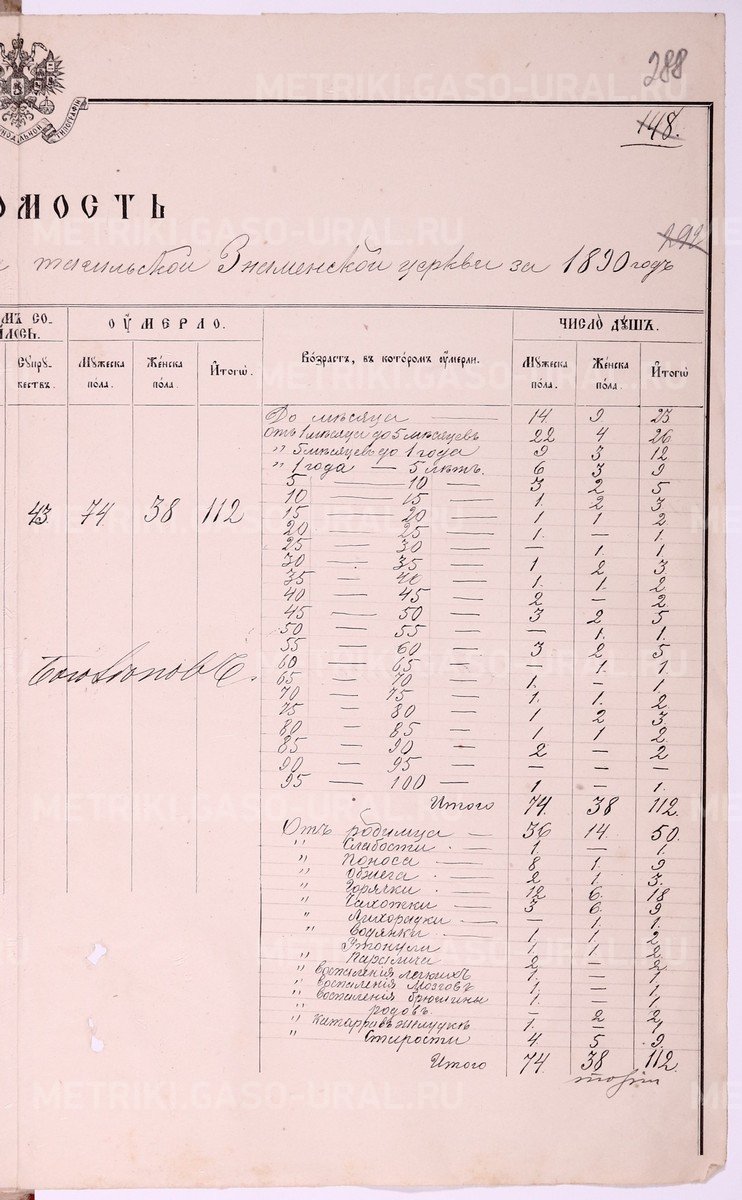 288
148.
292
ОМОСТЬ
тагильской Знаменской церкви за 1890 годъ
МЪ СО-
ЛОСЬ.
ОУМЕРЛО.
ЧИСЛО ДУШЪ.
Супру-
жествъ.
Мужеска пола.
Женска пола.
Итого.
Возрастъ, въ которомъ оумерли.
Мужеска пола.
Женска пола.
Итого
До мѣсяца — 14 9 23
Отъ 1 мѣсяца до 5 мѣсяцевъ 22 4 26
" 5 мѣсяцевъ до 1 года 9 3 12
" 1 года — 5 лѣтъ. 6 3 9
5 — 10 — 3 2 5
10 — 15 — 1. 2 3
43. 74 38 112
15 — 20 — 1 1 2
20 — 25 — 1. — 1.
25 — 30 — — 1. 1
30 — 35 — 1 2 3
35 — 40 — 1. 1. 2
40 — 45 — 2 — 2
45 — 50 — 3 2 5
50 — 55 — — 1. 1.
55 — 60 — 3 2 5
60 — 65 — — 1. 1
65 — 70 — 1. — 1
70 — 75 — 1. 1. 2
75 — 80 — 1 2 3
80 — 85 — 1 1 2
85 — 90 — 2 — 2
90 — 95 — — — —
95 — 100 — 1 — 1.
Итого 74 38 112
Отъ родимца — 36 14 50.
" Слабости — 1. — 1.
" Поноса — 8 1. 9
" Обжега — 2 1. 3.
" Горячки — 12 6. 18
" Чахотки — 3 6 9
" Лихорадки — — 1. 1.
" Водянки — 1. 1. 2
Утонули 1 1 2
" Паралича 2 — 2
" воспаления легкихъ 1. — 1
" воспаления мозговъ 1. — 1.
" воспаления брюшины 1. — 1.
" родовъ — 2 2
" Катарравъ желудка 1. — 1
" Старости 4 5 9.
Итого 74 38 112
METRIKI.GASO-URAL.RU